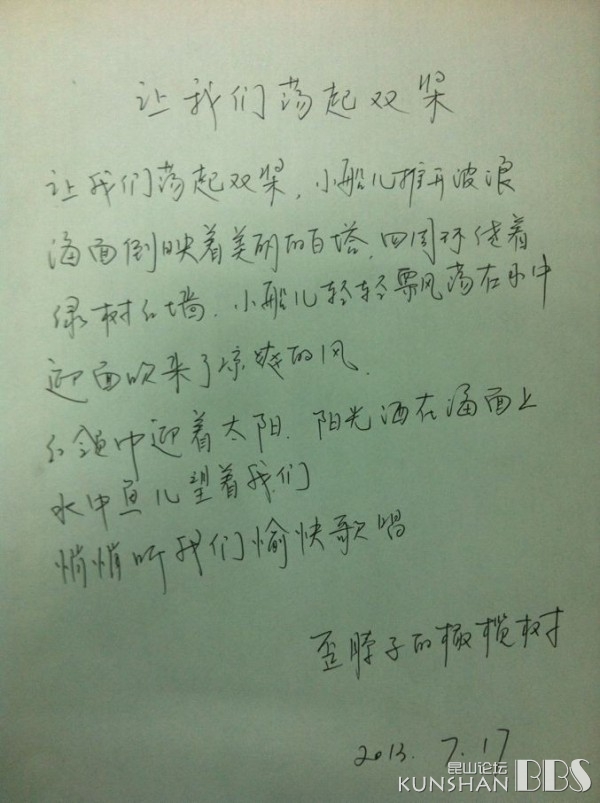 让我们荡起双桨
让我们荡起双桨，小船儿推开波浪
海面倒映着美丽的白塔，四周环绕着
绿树红墙．小船儿轻轻飘荡在水中
迎面吹来了凉爽的风．
红领巾迎着太阳．阳光洒在海面上
水中鱼儿望着我们
悄悄听我们愉快歌唱
歪脖子的橄榄树
2013. 7. 17
昆山论坛
KUNSHAN BBS